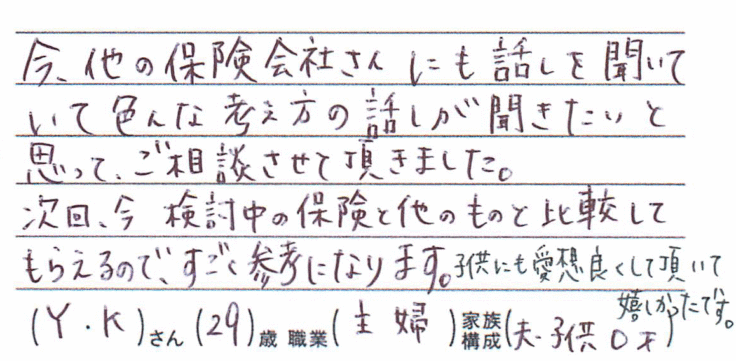 今、他の保険会社さんにも話しを聞いて
いて色んな考え方の話しが聞きたいと
思って、ご相談させて頂きました。
次回、今検討中の保険と他のものと比較して
もらえるので、すごく参考になります。子供にも愛想良くして頂いて
嬉しかったです。
(Y.K)さん(29)歳 職業(主婦)家族構成(夫・子供0才)